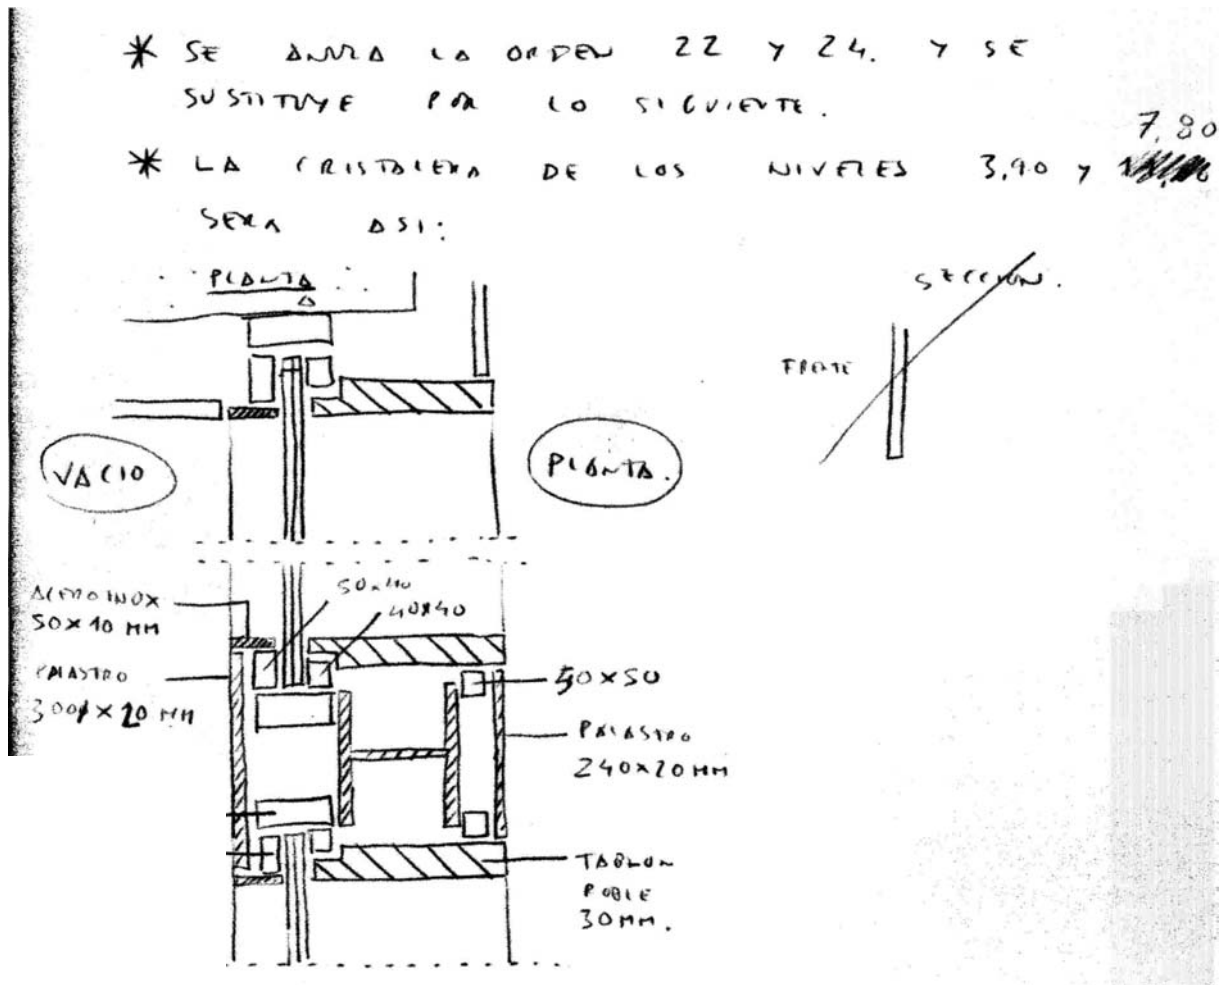 * SE ANULA LA ORDEN 22 Y 24. Y SE
SUSTITUYE POR LO SIGUIENTE.
7,80
* LA CRISTALERA DE LOS NIVELES 3,90 Y
SERA ASI:
PLANTA
SECCION.
FRENTE
VACIO
PLANTA.
50x40
40x40
ACERO INOX
50x10 MM
PALASTRO
300x20 MM
50x50
PALASTRO
240x20 MM
TABLON
ROBLE
30MM.